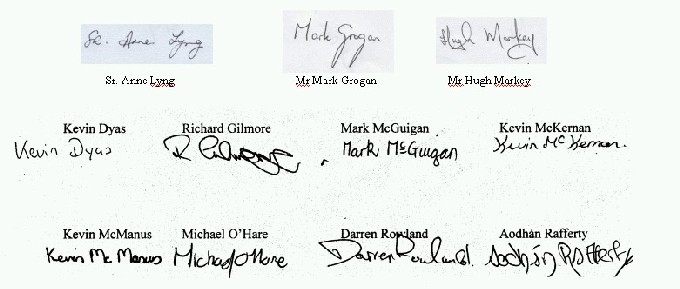 Sr. Anne Lyng Mark Grogan Hugh Markey
Sr. Anne Lyng Mr Mark Grogan Mr Hugh Markey
Kevin Dyas Richard Gilmore Mark McGuigan Kevin McKernan
Kevin Dyas R Gilmore Mark McGuigan Kevin McKernan
Kevin McManus Michael O'Hare Darren Rowland Aodhán Rafferty
Kevin Mc Manus Michael O'Hare Darren Rowland Aodhán Rafferty